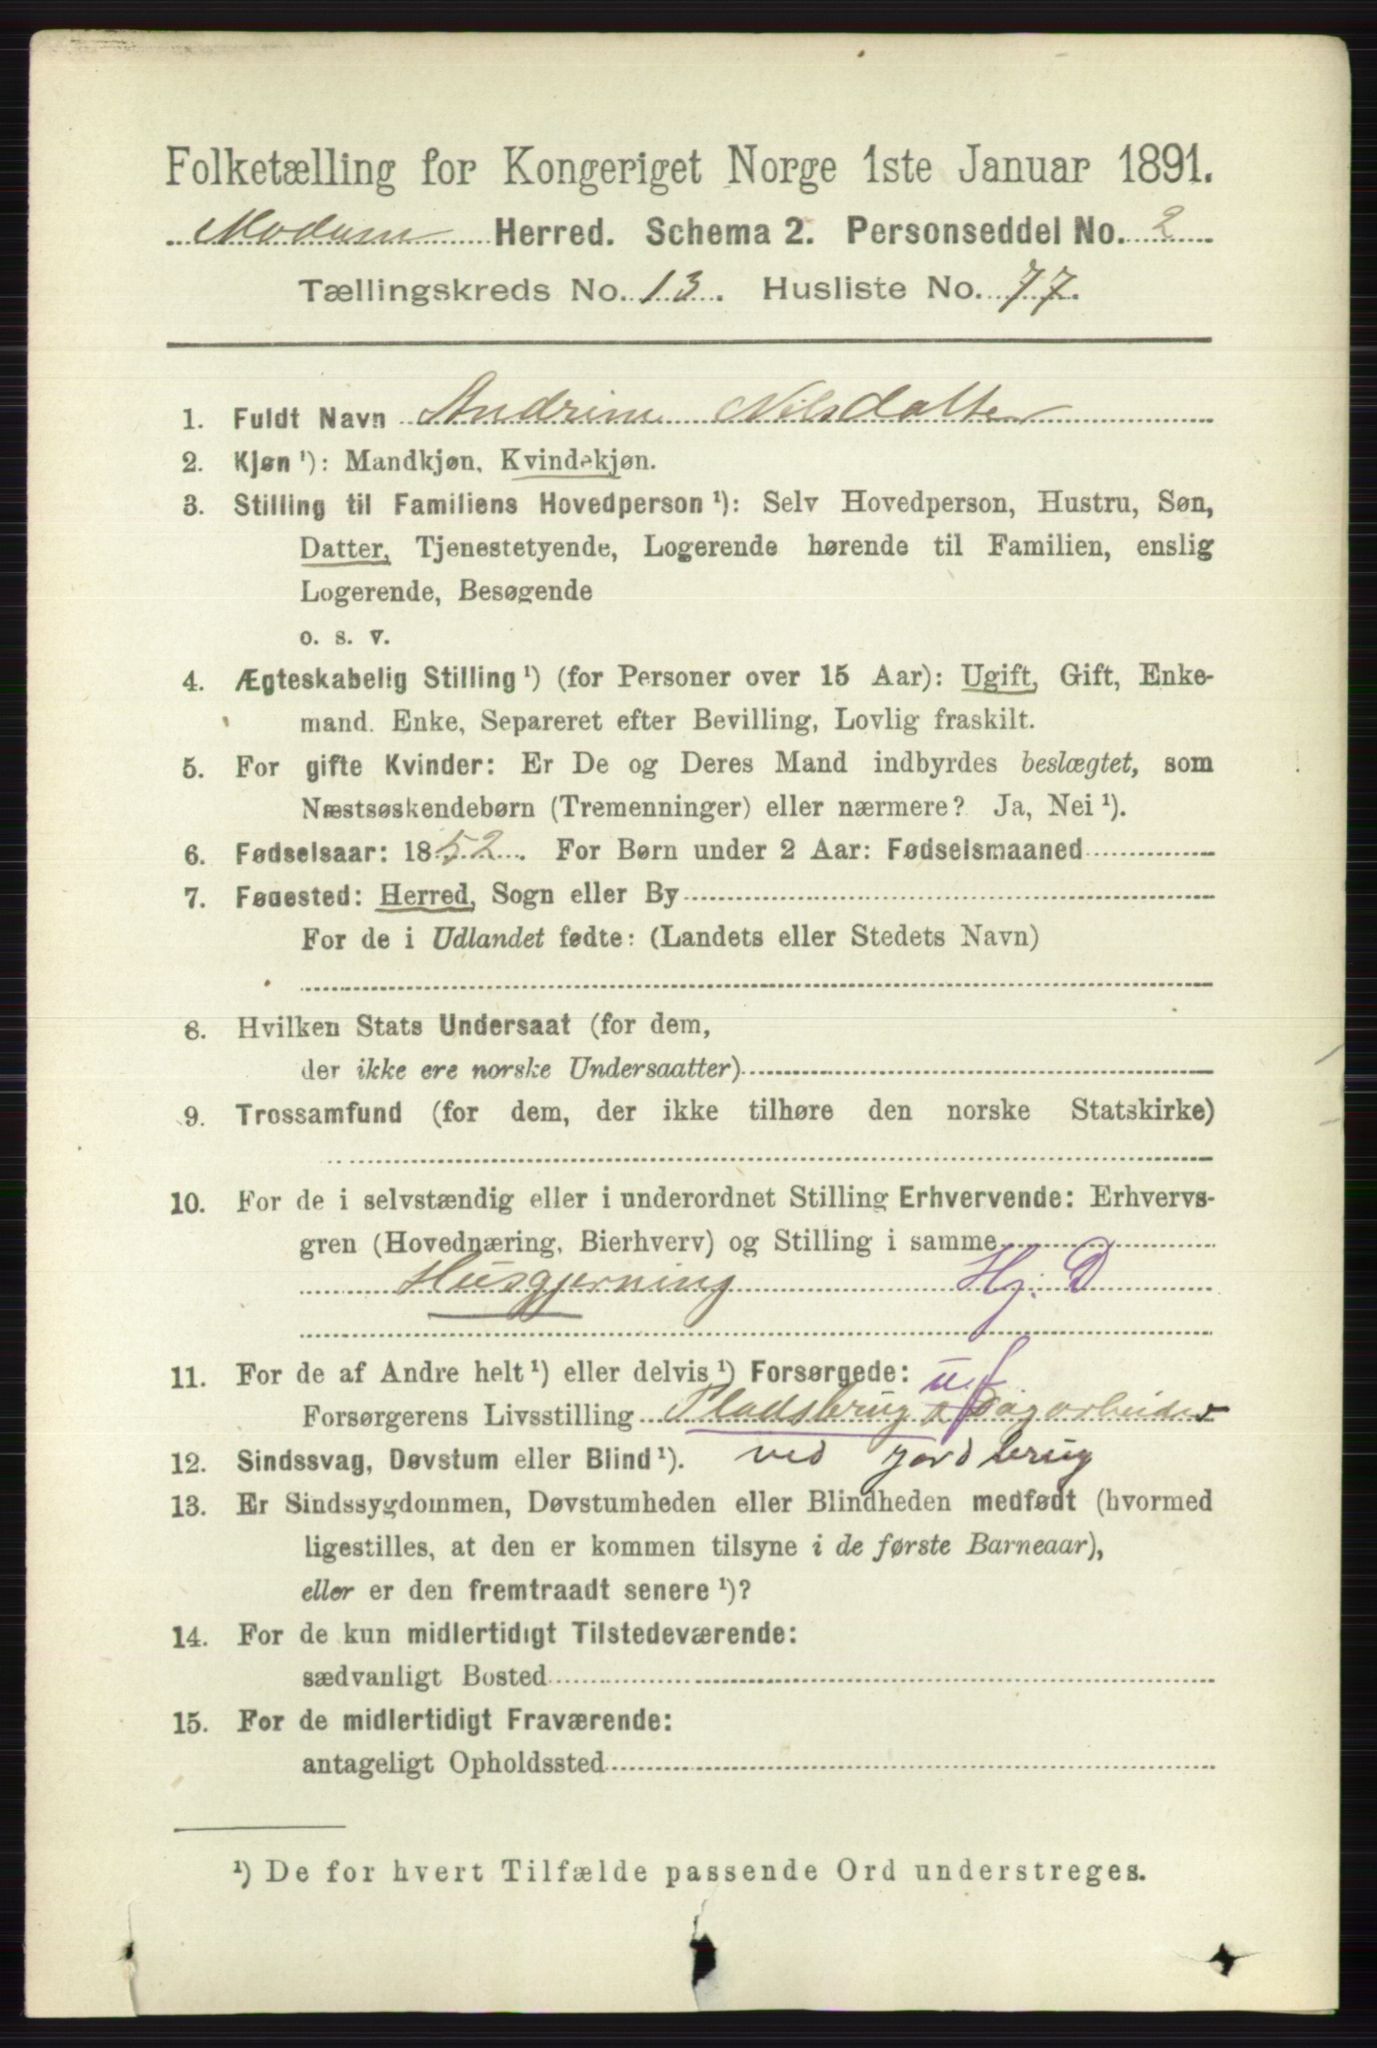 Folketælling for Kongeriget Norge 1ste Januar 1891.
Modum Herred. Schema 2. Personseddel No. 2
Tællingskreds No. 13. Husliste No. 77.
1. Fuldt Navn Andrine Nilsdatter
2. Kjøn ¹): Mandkjøn, Kvindekjøn.
3. Stilling til Familiens Hovedperson ¹): Selv Hovedperson, Hustru, Søn,
Datter, Tjenestetyende, Logerende hørende til Familien, enslig
Logerende, Besøgende
o. s. v.
4. Ægteskabelig Stilling ¹) (for Personer over 15 Aar): Ugift, Gift, Enke-
mand. Enke, Separeret efter Bevilling, Lovlig fraskilt.
5. For gifte Kvinder: Er De og Deres Mand indbyrdes beslægtet, som
Næstsøskendebørn (Tremenninger) eller nærmere? Ja, Nei ¹).
6. Fødselsaar: 1852. For Børn under 2 Aar: Fødselsmaaned
7. Fødested: Herred, Sogn eller By
For de i Udlandet fødte: (Landets eller Stedets Navn)
8. Hvilken Stats Undersaat (for dem,
der ikke ere norske Undersaatter)
9. Trossamfund (for dem, der ikke tilhøre den norske Statskirke)
10. For de i selvstændig eller i underordnet Stilling Erhvervende: Erhvervs-
gren (Hovednæring, Bierhverv) og Stilling i samme
Husgjerning Hj. D
11. For de af Andre helt ¹) eller delvis ¹) Forsørgede: u.f
Forsørgerens Livsstilling Pladsbrug & Dagarbeider
12. Sindssvag, Døvstum eller Blind ¹). ved jordbrug
13. Er Sindssygdommen, Døvstumheden eller Blindheden medfødt (hvormed
ligestilles, at den er kommen tilsyne i de første Barneaar),
eller er den fremtraadt senere ¹)?
14. For de kun midlertidigt Tilstedeværende:
sædvanligt Bosted
15. For de midlertidigt Fraværende:
antageligt Opholdssted
¹) De for hvert Tilfælde passende Ord understreges.